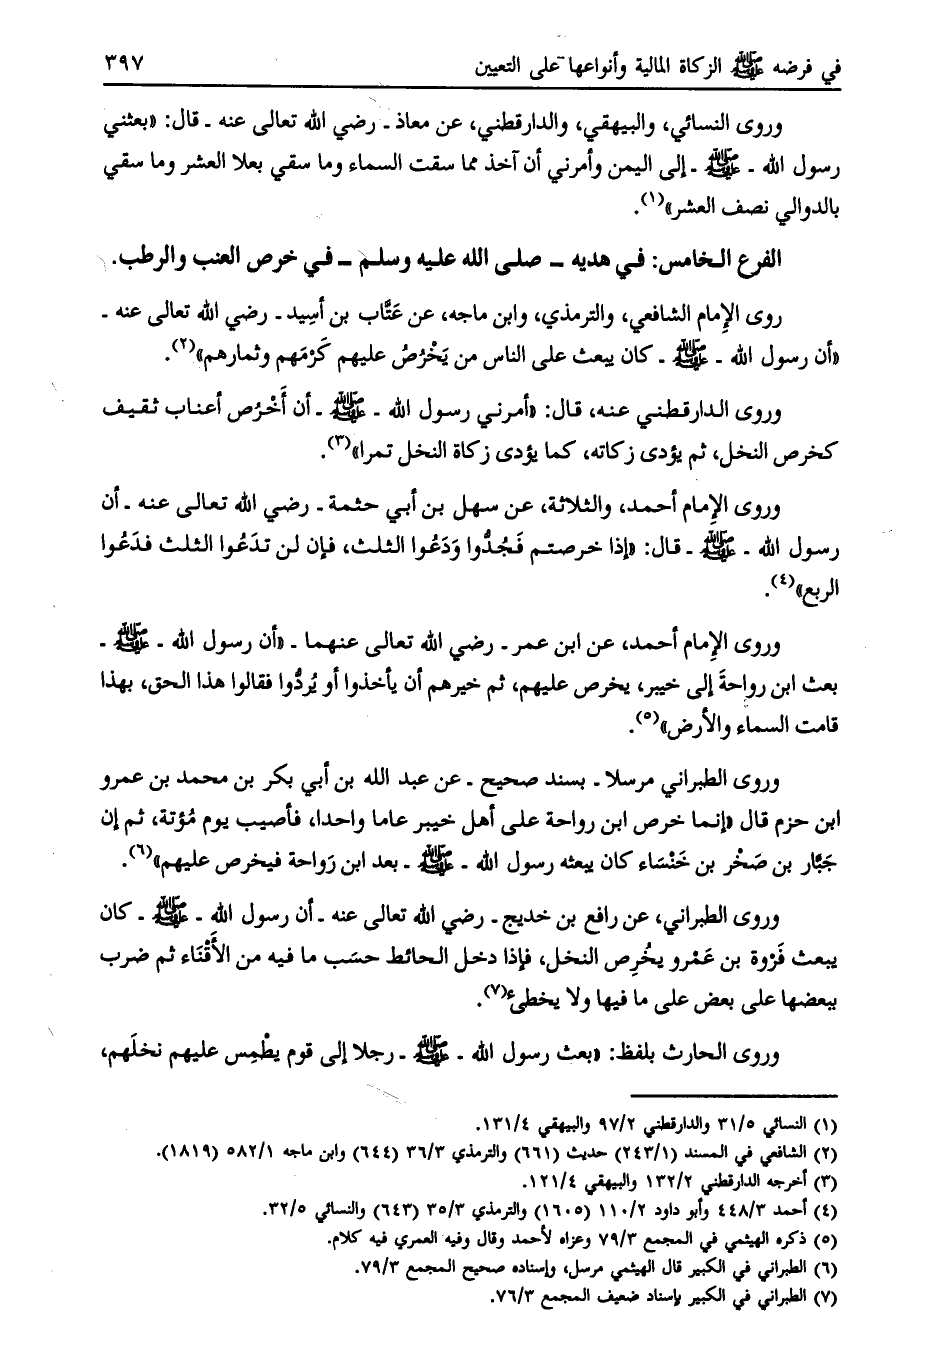 في فرضه ﷺ الزكاة المالية وأنواعها على التعيين ٣٩٧
وروى النسائي، والبيهقي، والدارقطني، عن معاذ ـ رضي الله تعالى عنه ـ قال: «بعثني
رسول الله ـ ﷺ ـ إلى اليمن وأمرني أن آخذ مما سقت السماء وما سقي بعلا العشر وما سقي
بالدوالي نصف العشر»(١).
الفرع الخامس: في هديه ـ صلى الله عليه وسلم ـ في خرص العنب والرطب.
روى الإمام الشافعي، والترمذي، وابن ماجه، عن عَتَّاب بن أسِيد ـ رضي الله تعالى عنه ـ
«أن رسول الله ـ ﷺ ـ كان يبعث على الناس من يَخْرُصُ عليهم كَرْمَهم وثمارهم»(٢).
وروى الدارقطني عنه، قال: «أمرني رسول الله ـ ﷺ ـ أن أَخْرُص أعناب ثقيف
كخرص النخل، ثم يؤدى زكاته، كما يؤدى زكاة النخل تمرا»(٣).
وروى الإمام أحمد، والثلاثة، عن سهل بن أبي حثمة ـ رضي الله تعالى عنه ـ أن
رسول الله ـ ﷺ ـ قال: «إذا خرصتم فَجُدُّوا وَدَعُوا الثلث، فإن لن تدَعُوا الثلث فدَعُوا
الربع»(٤).
وروى الإمام أحمد، عن ابن عمر ـ رضي الله تعالى عنهما ـ «أن رسول الله ـ ﷺ ـ
بعث ابن رواحةَ إلى خيبر، يخرص عليهم، ثم خيرهم أن يأخذوا أو يُردُّوا فقالوا هذا الحق، بهذا
قامت السماء والأرض»(٥).
وروى الطبراني مرسلا ـ بسند صحيح ـ عن عبد الله بن أبي بكر بن محمد بن عمرو
ابن حزم قال «إنما خرص ابن رواحة على أهل خيبر عاما واحدا، فأصيب يوم مُؤتة، ثم إن
جَبَّار بن صَخْر بن خَنْسَاء كان يبعثه رسول الله ـ ﷺ ـ بعد ابن رَواحة فيخرص عليهم»(٦).
وروى الطبراني، عن رافع بن خديج ـ رضي الله تعالى عنه ـ أن رسول الله ـ ﷺ ـ كان
يبعث فَرْوة بن عَمْرو يخُرِص النخل، فإذا دخل الحائط حسَب ما فيه من الأَقْنَاء ثم ضرب
ببعضها على بعض على ما فيها ولا يخطىء(٧).
وروى الحارث بلفظ: «بعث رسول الله ـ ﷺ ـ رجلا إلى قوم يطْمِس عليهم نخلَهم،
(١) النسائي ٣١/٥ والدارقطني ٩٧/٢ والبيهقي ١٣١/٤.
(٢) الشافعي في المسند (٢٤٣/١) حديث (٦٦١) والترمذي ٣٦/٣ (٦٤٤) وابن ماجه ٥٨٢/١ (١٨١٩).
(٣) أخرجه الدارقطني ١٣٢/٢ والبيهقي ١٢١/٤.
(٤) أحمد ٤٤٨/٣ وأبو داود ١١٠/٢ (١٦٠٥) والترمذي ٣٥/٣ (٦٤٣) والنسائي ٣٢/٥.
(٥) ذكره الهيثمي في المجمع ٧٩/٣ وعزاه لأحمد وقال وفيه العمري فيه كلام.
(٦) الطبراني في الكبير قال الهيثمي مرسل، وإسناده صحيح المجمع ٧٩/٣.
(٧) الطبراني في الكبير بإسناد ضعيف المجمع ٧٦/٣.